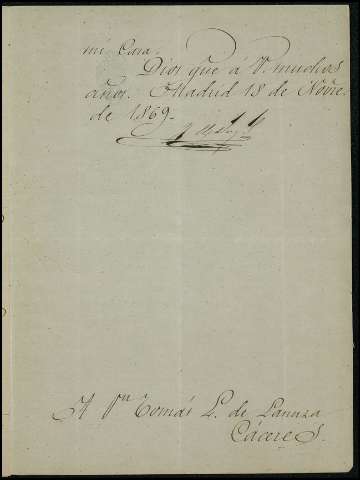 mi Casa.
Dios gue á V. muchos
años. Madrid 18 de Nõvre.
de 1869.
A Dn Tomás L. de Lanuza
Cáceres.